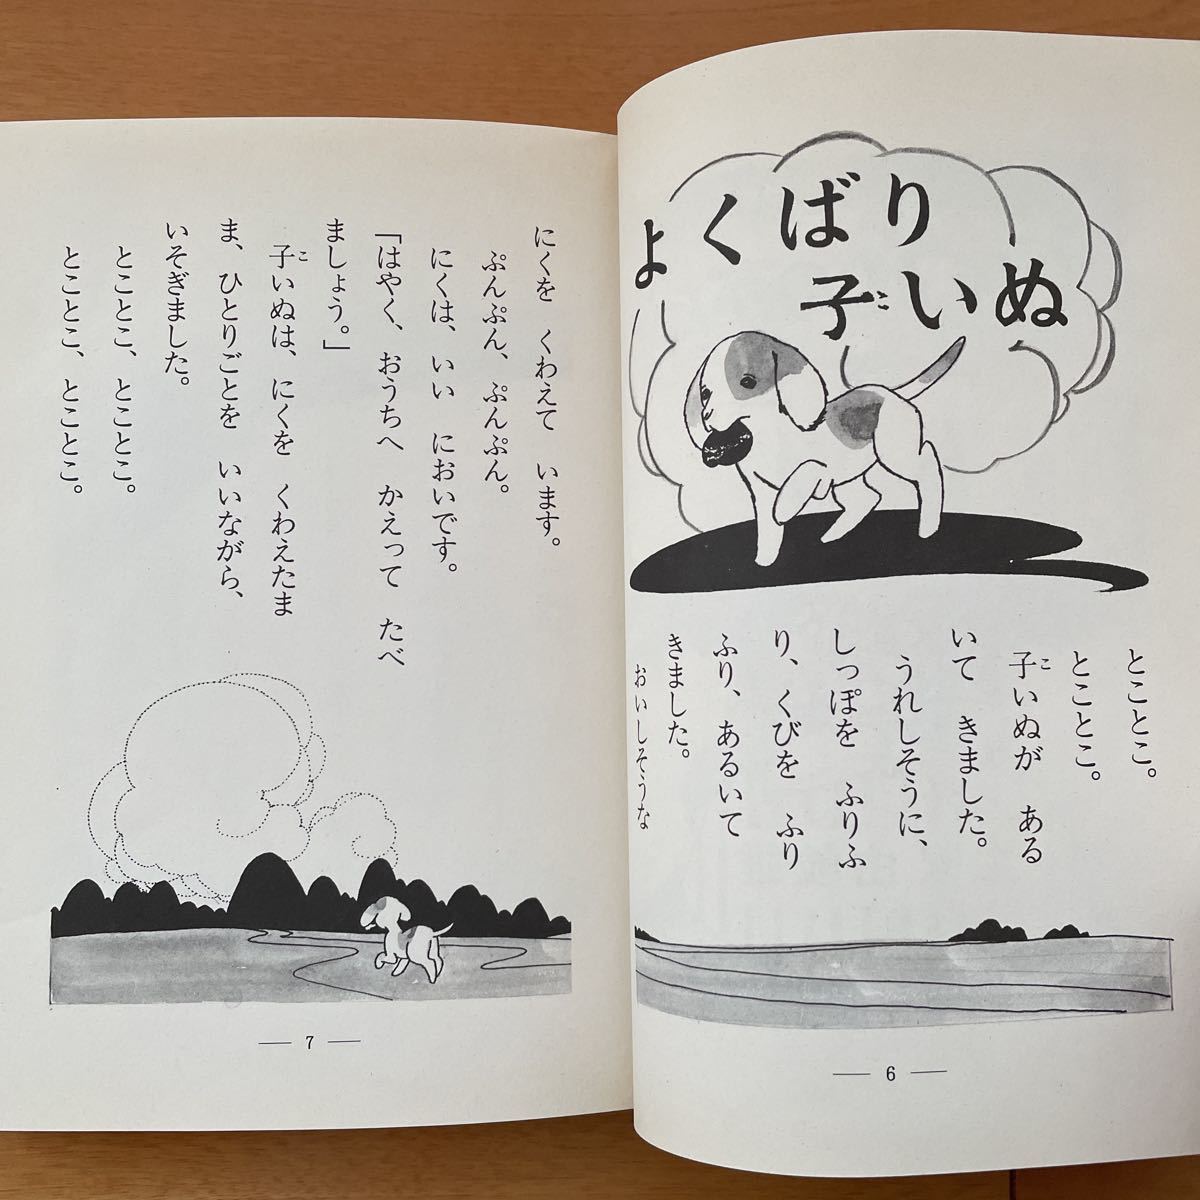 よくばり
子いぬ
こ
とことこ。
とことこ。
子いぬが　ある
こ
いて　きました。
うれしそうに、
しっぽを　ふりふ
り、くびを　ふり
ふり、あるいて
きました。
おいしそうな
6
にくを　くわえて　います。
ぷんぷん、ぷんぷん。
にくは、いい　においです。
「はやく、おうちへ　かえって　たべ
ましょう。」
子いぬは、にくを　くわえたま
こ
ま、ひとりごとを　いいながら、
いそぎました。
とことこ、とことこ。
とことこ、とことこ。
7